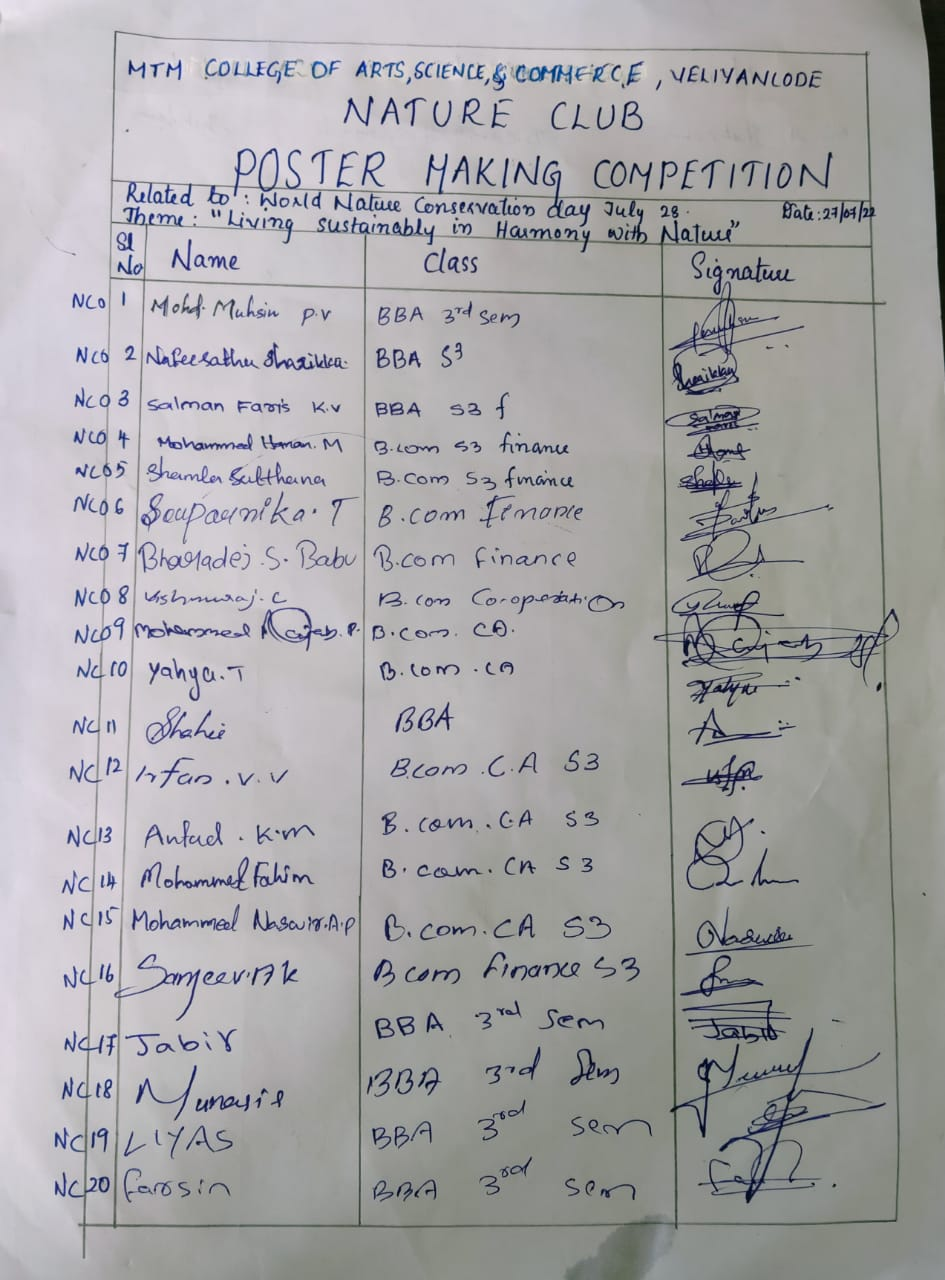 MTM COLLEGE OF ARTS, SCIENCE, & COMMERCE, VELIYANCODE
NATURE CLUB
POSTER MAKING COMPETITION
Related to : World Nature Conservation day July 28.
Date : 27/07/22
Theme : "Living sustainably in Harmony with Nature"
Sl No Name Class Signature
NC0 1 Mohd. Muhsin P.V BBA 3rd Sem
NC0 2 Nafeesathu Sharikka. BBA S3
NC0 3 Salman Faris K.V BBA S3 f Salman
NC0 4 Mohammed Hanan. M B.com S3 finance
NC0 5 Shamla Sulthana B.com S3 finance
NC0 6 Souparnika. T B.com Finance
NC0 7 S. Babu B.com finance
NC0 8 Vishnuraj. C B.com Co-operation
NC0 9 Mohammed P. B.com. CA.
NC 10 Yahya. T B.com. CA
NC 11 BBA
NC 12 Irfan. V. V B.com. C.A S3
NC 13 K.M B.com. CA S3
NC 14 Mohammed Fahim B.com. CA S3
NC 15 Mohammed A.P B.com. CA S3
NC 16 Sanjeev. A K B com finance S3
NC 17 Jabir BBA 3rd Sem Jabir
NC 18 BBA 3rd Sem
NC 19 LIYAS BBA 3rd Sem
NC 20 farsin BBA 3rd Sem